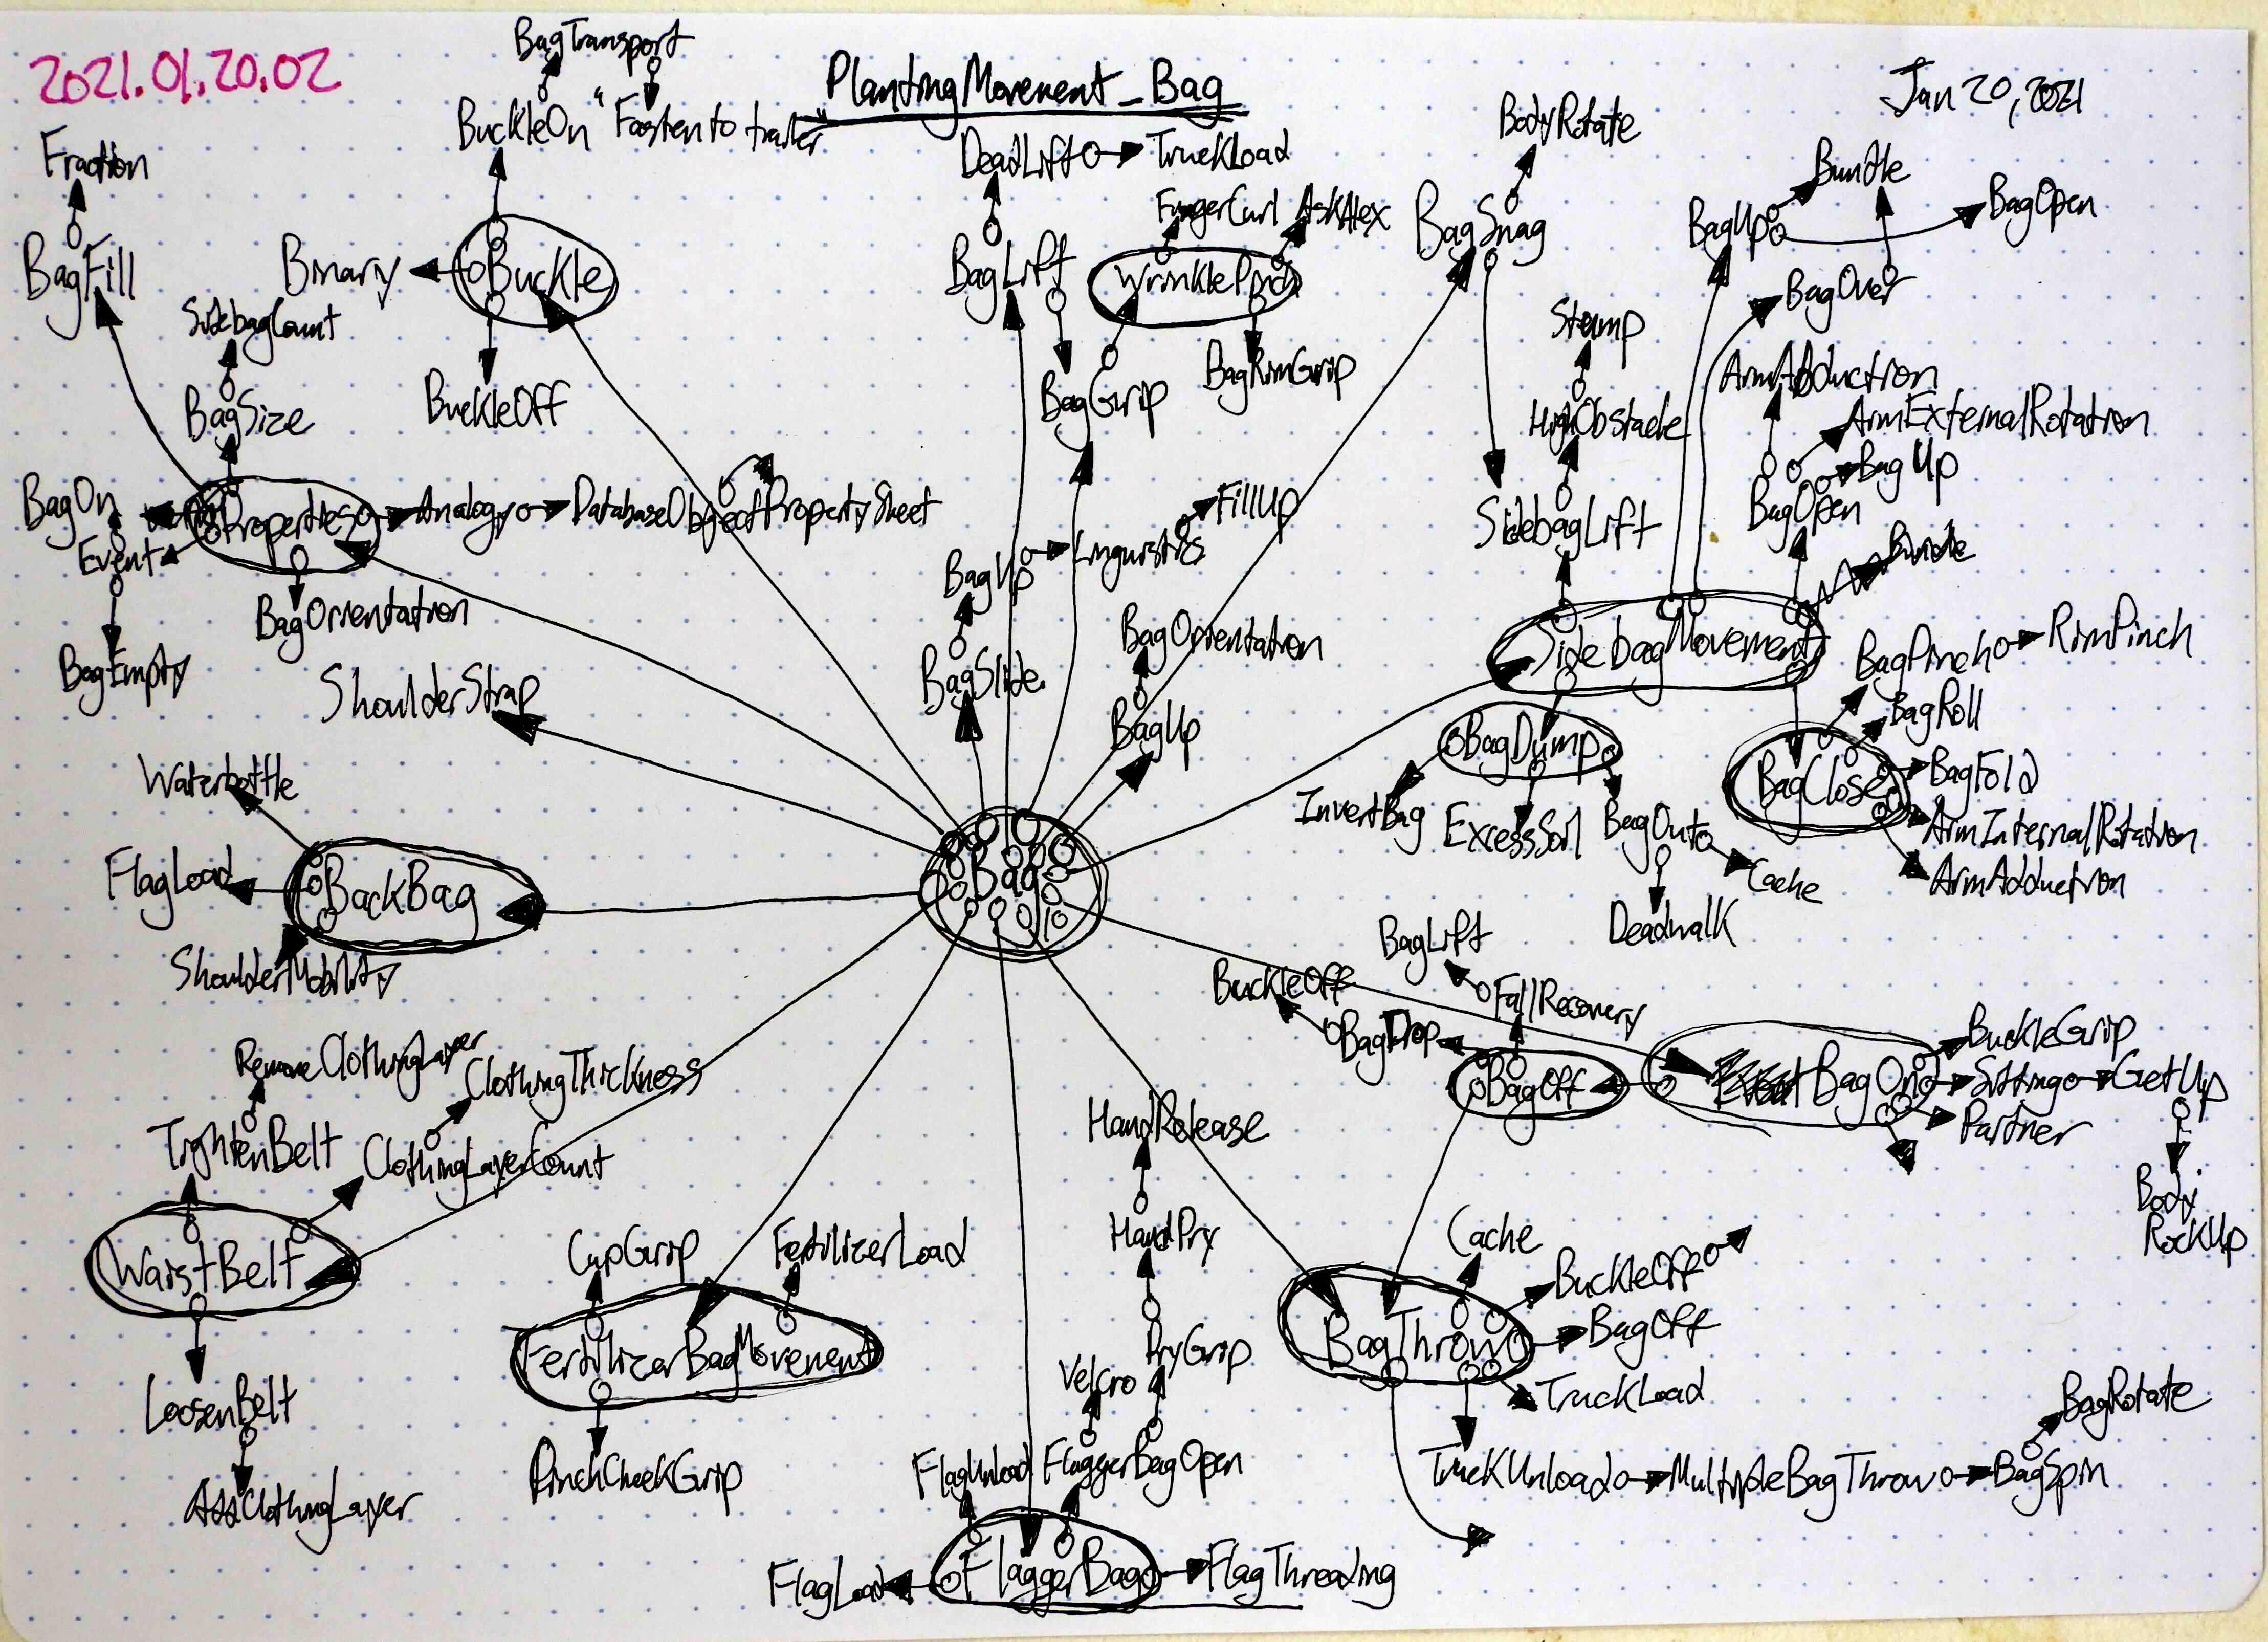 2021.01.20.02
PlantingMovement_Bag
Jan 20, 2021
BagTransport
BuckleOn
"Fasten to trailer"
Fraction
BagFill
Binary
Buckle
BuckleOff
SidebagCount
BagSize
BagOn
Properties
Event
BagEmpty
BagOrientation
Analogy
DatabaseObjectPropertySheet
DeadLift
TruckLoad
BagLift
FingerCurl
AskAlex
WrinklePinch
BagGrip
BagRimGrip
BodyRotate
BagSnag
Stump
HighObstacle
SidebagLift
Bundle
BagUp
BagOpen
BagOver
ArmAbduction
ArmExternalRotation
Bag Up
BagOpen
Bundle
SidebagMovement
BagPinch
RimPinch
BagRoll
BagClose
BagFold
ArmInternalRotation
ArmAdduction
BagDump
InvertBag
ExcessSoil
BagOut
Cache
Deadwalk
FillUp
Linguistics
BagUp
BagSlide
BagOrientation
BagUp
ShoulderStrap
Waterbottle
FlagLoad
BackBag
ShoulderMobility
Bag
BagLift
BuckleOff
FallRecovery
BagDrop
BagOff
BagOn
BuckleGrip
Sitting
GetUp
Partner
Body
RockUp
RemoveClothingLayer
ClothingThickness
TightenBelt
ClothingLayerCount
WaistBelt
LoosenBelt
AddClothingLayer
CupGrip
FertilizerLoad
FertilizerBagMovement
PinchCheekGrip
HandRelease
HandPry
PryGrip
Velcro
FlagUnload
FlaggerBagOpen
FlaggerBag
FlagLoad
FlagThreading
Cache
BuckleOff
BagThrow
BagOff
TruckLoad
TruckUnload
MultipleBagThrow
BagSpin
BagRotate